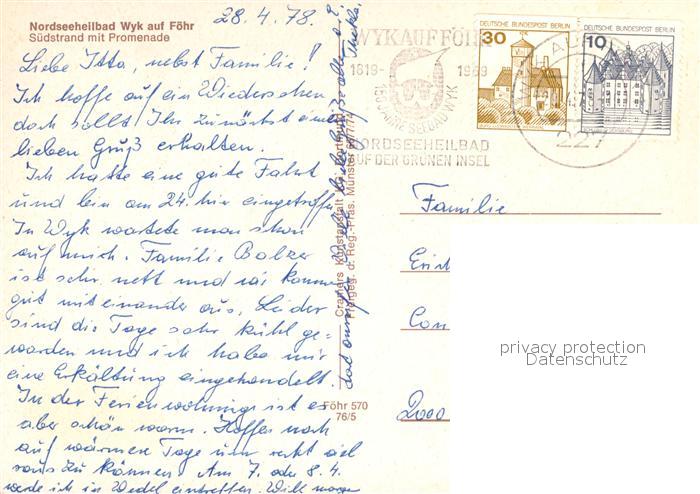 Nordseeheilbad Wyk auf Föhr
Südstrand mit Promenade
28.4.78.
Liebe Itta, nebst Familie!
Ich hoffe auf ein Wiedersehen,
doch sollt Ihr zunächst einen
lieben Gruß erhalten.
Ich hatte eine gute Fahrt
und bin am 24. hier eingetroffen
In Wyk wartete man schon
auf mich. Familie Balzer
ist sehr nett und wir kommen
gut miteinander aus. Leider
sind die Tage sehr kühl ge-
worden und ich habe mir
eine Erkältung eingehandelt.
In der Ferienwohnung ist es
aber schön warm. Hoffe noch
auf wärmere Tage um recht viel
raus zu können. Am 7. oder 8. 4.
werde ich in Wedel eintreffen. Will morgen
Cramers Kunstanstalt KG, Dortmund
Freigeg. d. Reg.-Präs. Münster
Föhr 570
76/5
WYK AUF FÖHR
1819- 1969
150 JAHRE SEEBAD WYK
NORDSEEHEILBAD
AUF DER GRÜNEN INSEL
DEUTSCHE BUNDESPOST BERLIN
30
DEUTSCHE BUNDESPOST BERLIN
10
227
Familie
Erich
Con
2000
privacy protection
Datenschutz